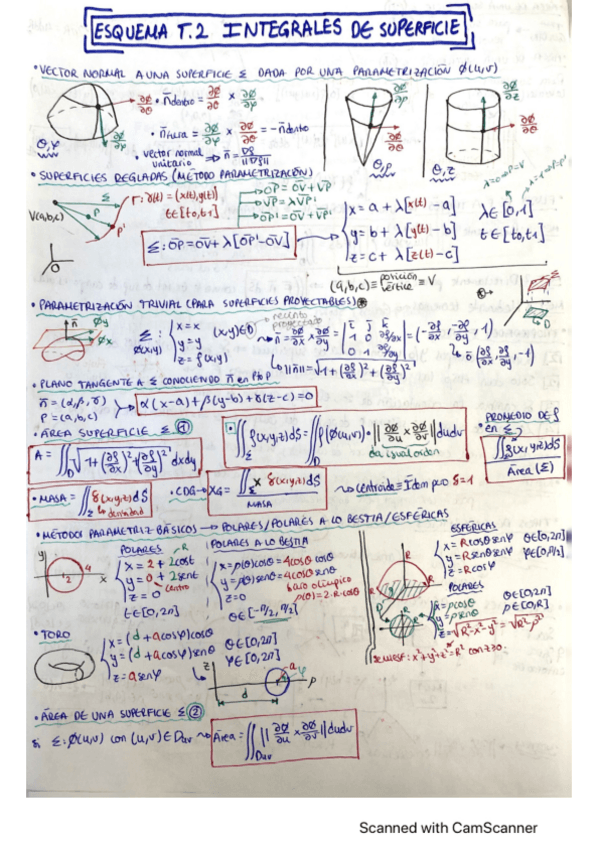 ESQUEMA T.2 INTEGRALES DE SUPERFICIE
• VECTOR NORMAL A UNA SUPERFICIE Σ DADA POR UNA PARAMETRIZACIÓN Φ(u,v)
• n̄dentro = ∂Φ/∂θ × ∂Φ/∂φ
• n̄fuera = ∂Φ/∂φ × ∂Φ/∂θ = -n̄dentro
• vector normal unitario ⇒
∂Φ/∂θ
∂Φ/∂φ
θ,φ
∂Φ/∂ρ
∂Φ/∂θ
θ,ρ
∂Φ/∂z
∂Φ/∂θ
θ,z
• SUPERFICIES REGLADAS (MÉTODO PARAMETRIZACIÓN)
V(a,b,c)
Σ
P
P'
Γ: γ(t) = (x(t),y(t))
t∈[t0,t1]
OP = OV + VP
VP = λVP'
OP' = OV + VP'
Σ: OP = OV + λ[OP' - OV]
x = a + λ[x(t) - a]
y = b + λ[y(t) - b]
z = c + λ[z(t) - c]
λ∈[0,1]
t∈[t0,t1]
(a,b,c) ≡ posición vértice ≡ V
• PARAMETRIZACIÓN TRIVIAL (PARA SUPERFICIES PROYECTABLES)
Σ: Φ(x,y)
x = x
y = y
z = f(x,y)
(x,y)∈D
recinto proyectado
n̄ = ∂Φ/∂x × ∂Φ/∂y = |i j k; 1 0 ∂f/∂x; 0 1 ∂f/∂y| = (-∂f/∂x, -∂f/∂y, 1)
ō (∂f/∂x, ∂f/∂y, -1)
||n̄|| = √1+(∂f/∂x)²+(∂f/∂y)²
• PLANO TANGENTE A Σ CONOCIENDO n̄ en Pto P
n̄ = (α,β,γ)
P = (a,b,c)
α(x-a)+β(y-b)+γ(z-c)=0
• ÁREA SUPERFICIE Σ ①
A = ∬D √1+(∂f/∂x)²+(∂f/∂y)² dxdy
∬Σ f(x,y,z)dS = ∬ f(Φ(u,v))·||∂Φ/∂u × ∂Φ/∂v|| dudv
da igual orden
• PROMEDIO DE f en Σ
∬Σ f(x,y,z)dS
Área (Σ)
• MASA = ∬Σ δ(x,y,z)dS
densidad
• CDG → XG = ∬Σ x δ(x,y,z)dS
MASA
centroide ≡ Idem pero δ=1
• MÉTODOS PARAMETRIZ BÁSICOS → POLARES/POLARES A LO BESTIA/ESFÉRICAS
POLARES
x = 2 + 2cost
y = 0 + 2sent
z = 0
R
centro
t∈[0,2π]
POLARES A LO BESTIA
x = ρ(θ)cosθ = 4cosθ cosθ
y = ρ(θ)senθ = 4cosθ senθ
z = 0
ρ(θ) = 2·R·cosθ
θ∈[-π/2,π/2]
ESFÉRICAS
x = Rcosθsenφ
y = Rsenθsenφ
z = Rcosφ
θ∈[0,2π]
φ∈[0,π/2]
POLARES
x = ρcosθ
y = ρsenθ
z = √R²-x²-y² = √R²-ρ²
θ∈[0,2π]
ρ∈[0,R]
x²+y²+z²=R² con z≥0
• TORO
x = (d+acosφ)cosθ
y = (d+acosφ)senθ
z = asenφ
θ∈[0,2π]
φ∈[0,2π]
z
a
ρ
d
• ÁREA DE UNA SUPERFICIE Σ ②
Si Σ: Φ(u,v) con (u,v)∈Duv ⇝ Área = ∬Duv ||∂Φ/∂u × ∂Φ/∂v|| dudv
Scanned with CamScanner